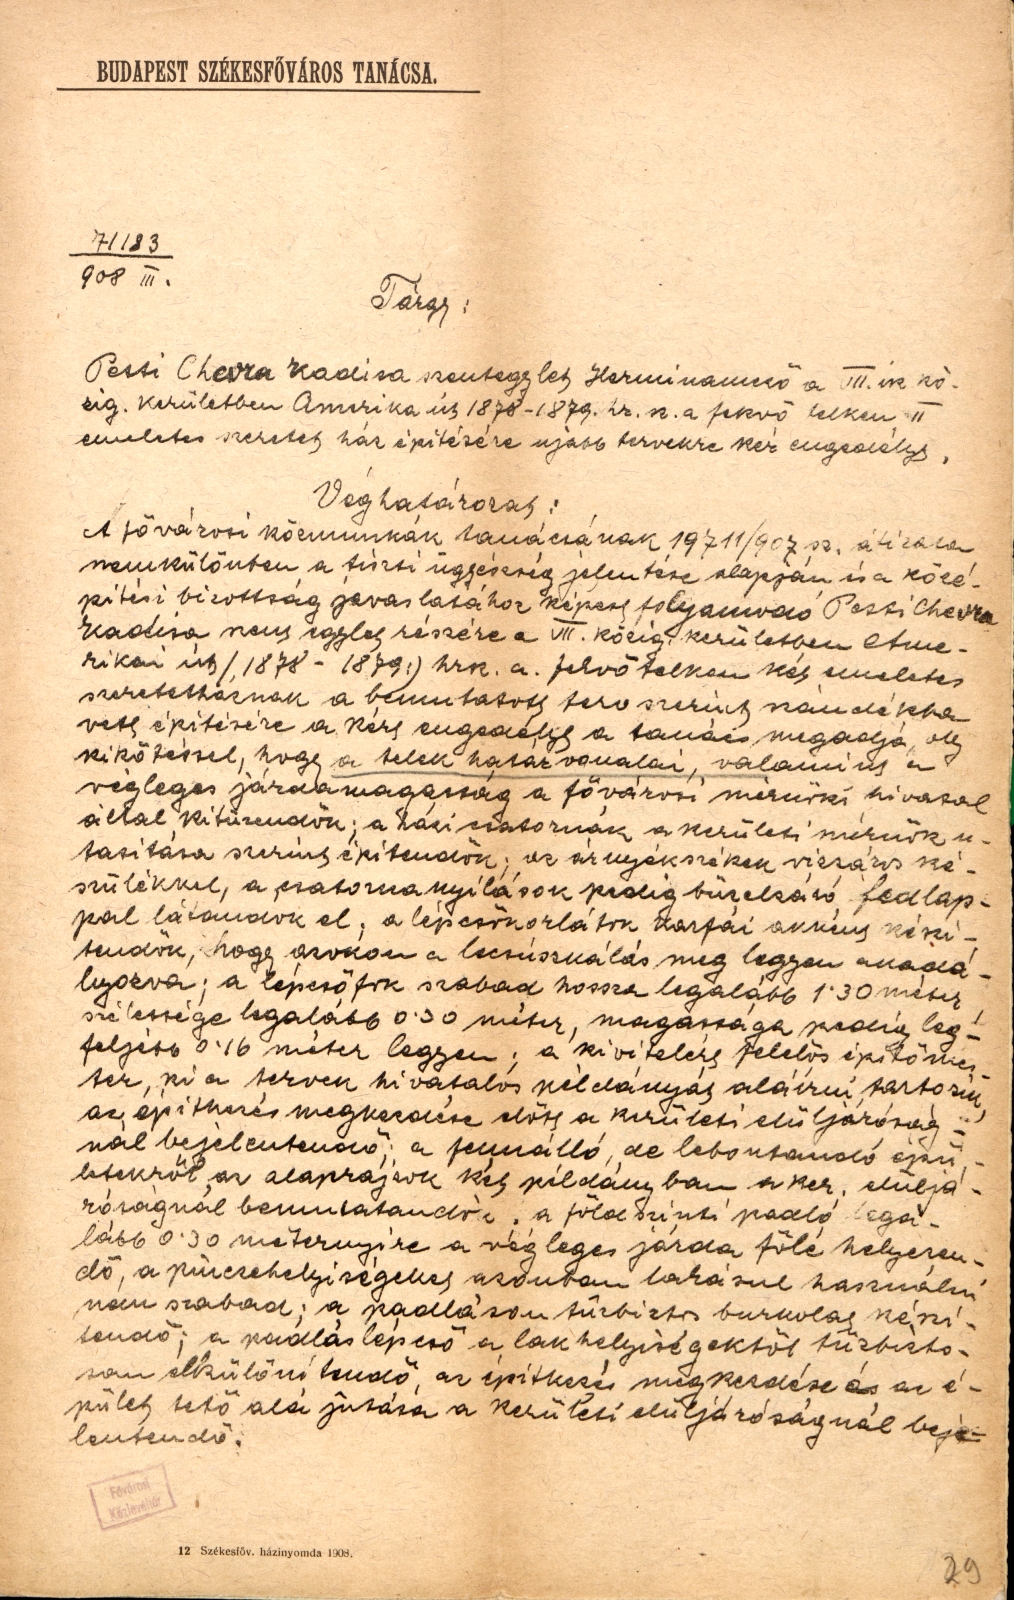 BUDAPEST SZÉKESFŐVÁROS TANÁCSA.
71183
908 III.
Tárgy:
Pesti Chevra Kadisa szentegylet Herminamező a VII. ik kö-
zig. kerületben Amerika út 1878-1879. hr. sz. a fekvő telken II
emeletes szeretet ház építésére ujabb tervekre kér engedélyt.
Véghatározat:
A fővárosi közmunkák tanácsának 19711/907 sz. átirata
nemkülönben a tiszti ügyészség jelentése alapján és a közé-
pítési bizottság javaslatához képest folyamodó Pesti Chevra
Kadisa egylet részére a VII. közig. kerületben Ame-
rikai út /1878 - 1879:) hrk. a. fekvő telken két emeletes
szeretetháznak a bemutatott terv szerint szándékba
vett építésére a kért engedélyt a tanács megadja, oly
kikötéssel, hogy a telek határvonalai, valamint a
végleges járdamagasság a fővárosi mérnöki hivatal
által kitüzendők; a házi csatornák a kerületi mérnök u-
tasitása szerint építendők; az árnyékszékek vízzáros ké-
szülékkel, a csatorna nyílások pedig bűzelzáró fedlap-
pal látandók el; a lépcsőkorlátok karfái akként készí-
tendők, hogy azokon a lecsúszkálás meg legyen akadá-
lyozva; a lépcsőfok szabad hossza legalább 1.30 méter,
szélessége legalább 0.30 méter, magassága pedig leg-
feljebb 0.16 méter legyen; a kivitelért felelős építőmes-
ter, ki a tervek hivatalos példányát aláírni tartozik,
az építkezés megkezdése előtt a kerületi elüljáróság-
nál bejelentendő; a fennálló, de lebontandó épü-
letekről az alaprajzok két példányban a ker. elüljá-
róságnál bemutatandók; a földszinti padló lega-
lább 0.30 méternyire a végleges járda fölé helyezen-
dő, a pinczehelyiségeket azonban lakásul használni
nem szabad; a padláson tűzbiztos burkolat készí-
tendő; a padláslépcső a lakhelyiségektől tűzbizto-
san elkülönítendő, az építkezés megkezdése és az é-
pület tető alá jutása a kerületi elüljáróságnál beje-
lentendő.
Fővárosi
Közlevéltár
12 Székesföv. házinyomda 1908.
29